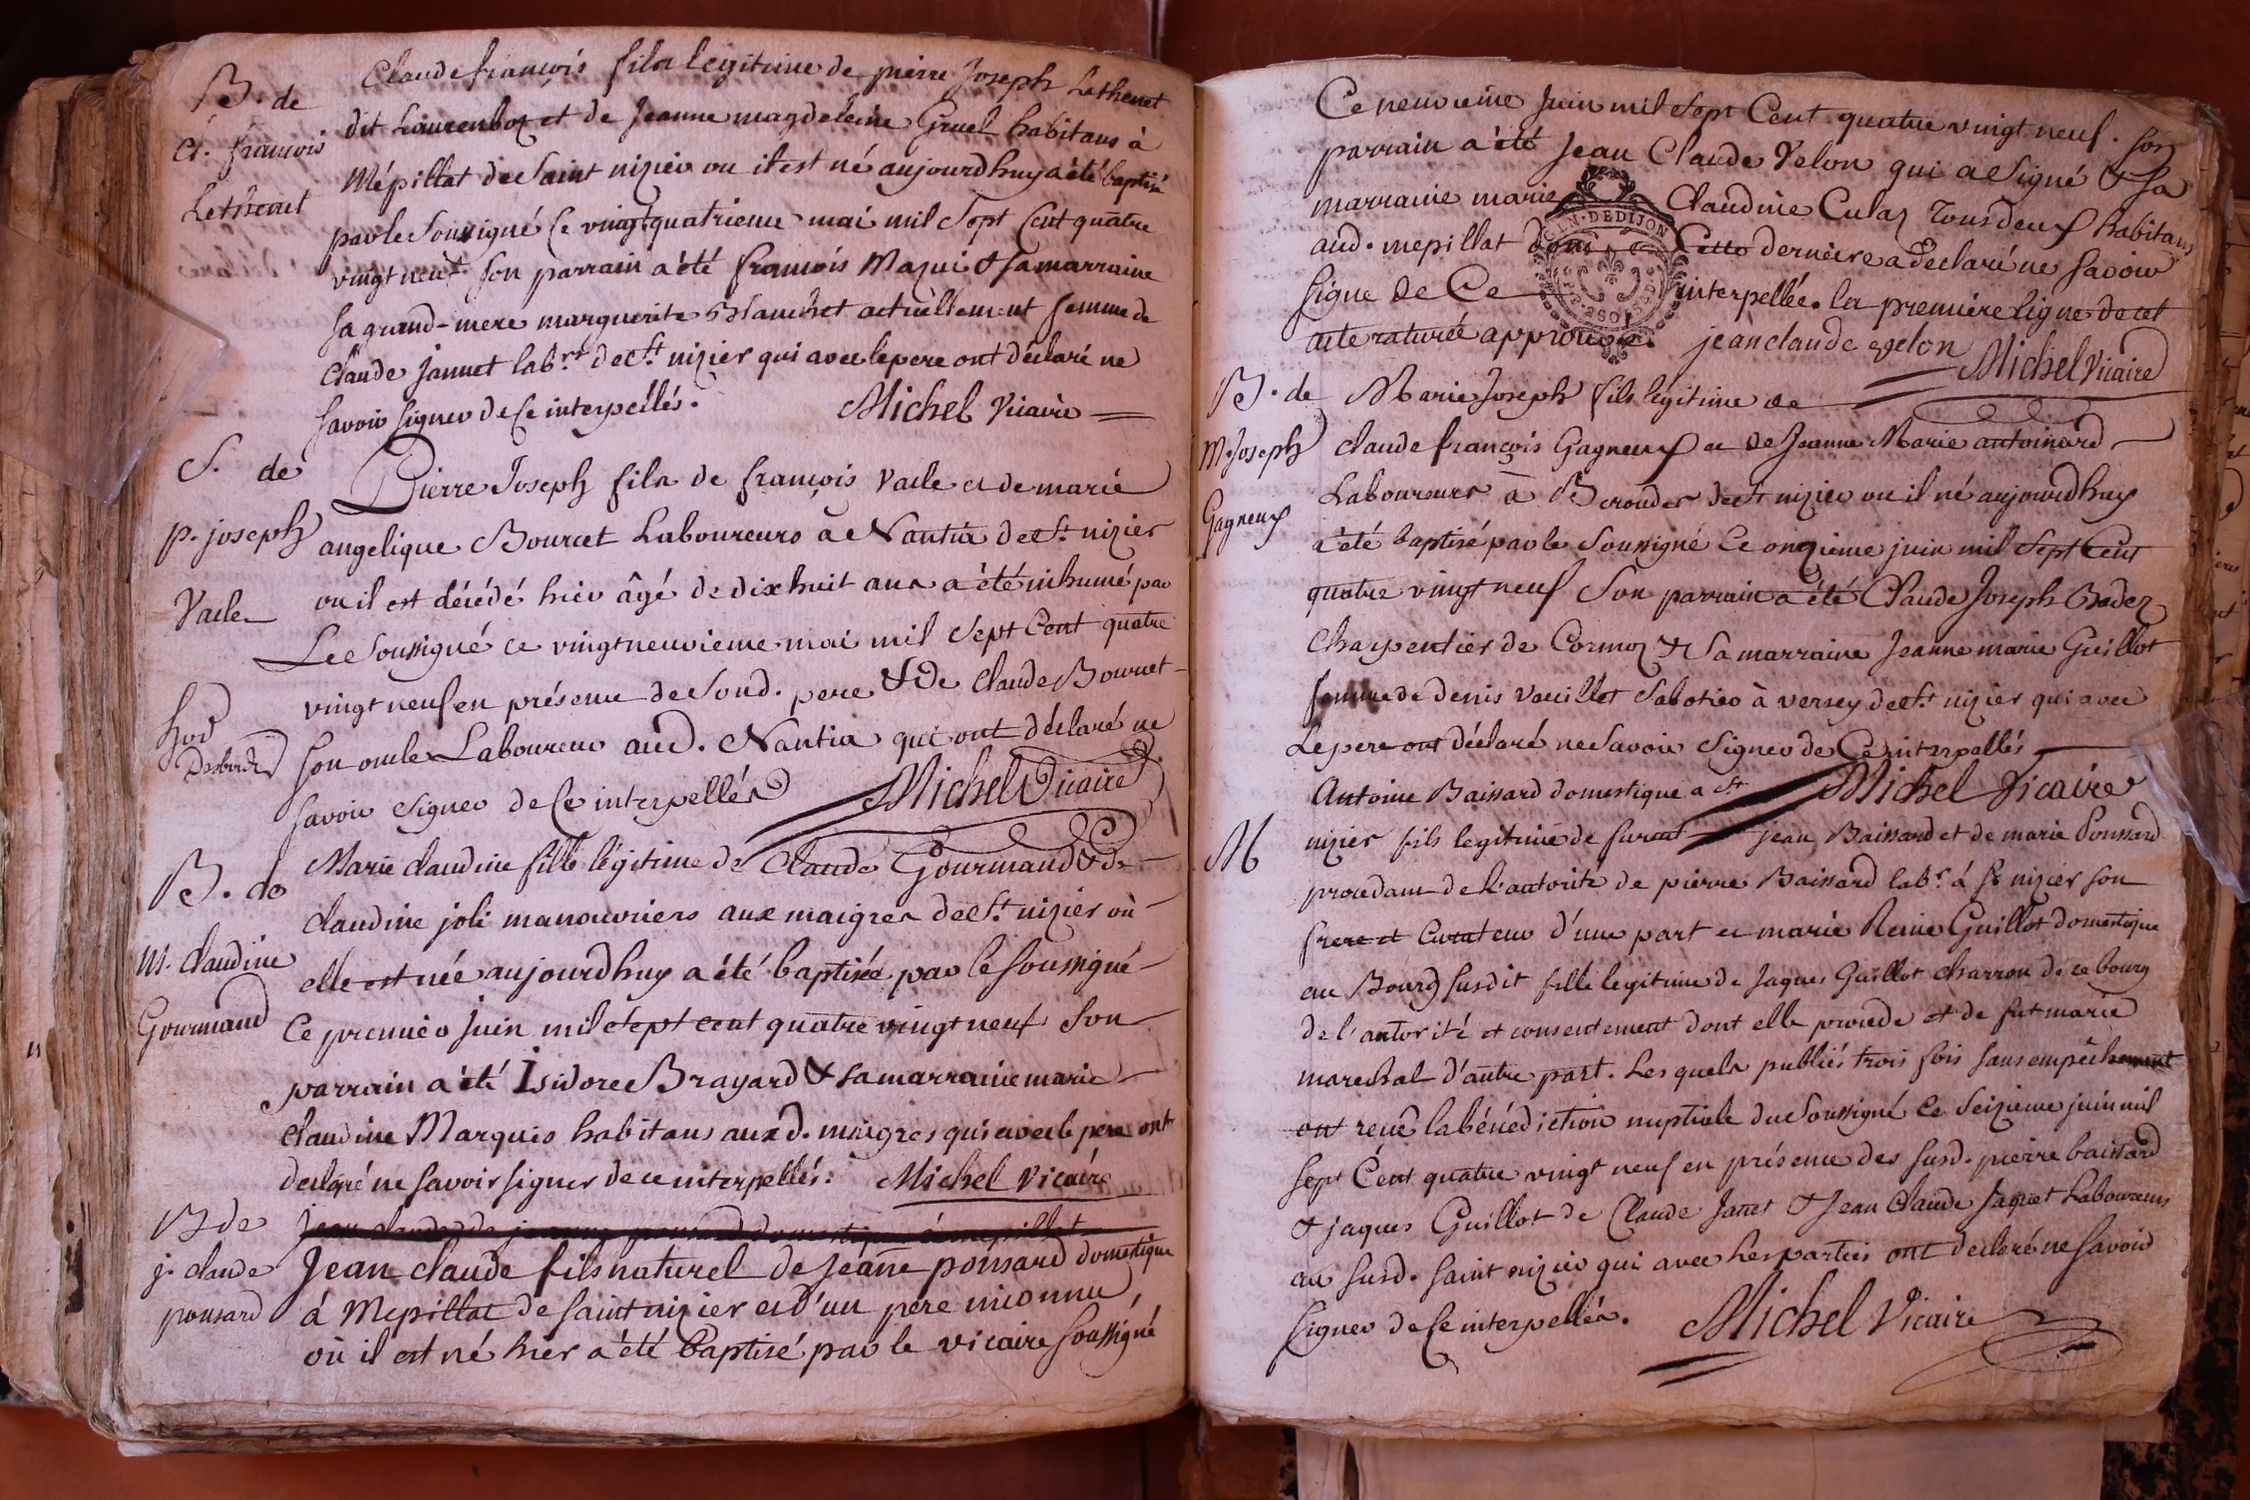 B. de
Cl. francois
Lethenet
Claude françois fils legitime de pierre Joseph Lethenet
dit et de Jeanne magdeleine Gruel habitans à
Mépillat de Saint nizier ou il est né aujourdhuy a été baptisé
par le Soussigné Ce vingt quatrieme mai mil Sept Cent quatre
vingt neuf. Son parrain a été francois Mazui & sa marraine
sa grand-mere marguerite Blanchet actuellement femme de
Claude Jannet labr. de St. nizier qui avec le pere ont déclaré ne
savoir signer de Ce interpellés. Michel Vicaire
S. de
p. joseph
Vacle
Pierre Joseph fils de françois Vacle et de marie
angelique Bourcet Laboureurs à Nantia de St. nizier
ou il est décédé hier âgé de dix huit ans a été inhumé par
Le Soussigné ce vingt neuvieme mai mil Sept Cent quatre
vingt neuf en présence de Sond. pere & de Claude Bourcet
son oncle Laboureur aud. Nantia qui ont déclaré ne
savoir signer de Ce interpellés Michel Vicaire
B. de
M. claudine
Gourmand
Marie claudine fille légitime de Claude Gourmand & de
claudine joli manouvriers aux maigres de St. nizier où
elle est née aujourdhuy a été baptisée par le soussigné
Ce premier Juin mil Sept cent quatre vingt neuf Son
parrain a été Isidore Brayard & sa marraine marie
claudine Marquis habitans auxd. maigres qui avec le pere ont
declaré ne savoir signer de ce interpellés. Michel Vicaire
B de
j. claude
ponsard
Jean claude fils naturel de Jeane ponsard domestique
á Mepillat de saint nizier et d'un pere inconnu,
où il est né hier a été baptisé par le vicaire soussigné
Ce neuvieme Juin mil Sept Cent quatre vingt neuf. son
parrain a été Jean Claude Velon qui a Signé & sa
marraine marie Claudine Culaz Tous deux habitans
aud. mepillat dont Cette derniere a declaré ne savoir
signe de Ce interpellée. la premiere ligne de cet
acte raturée approuvée. jean claude velon Michel Vicaire
B. de
M. Joseph
Gagneux
Marie Joseph fils legitime de
claude françois Gagneux et de Jeanne Marie antoinard
Laboureurs à de St nizier ou il né aujourdhuy
a été baptisé par le Soussigné Ce onzieme juin mil Sept Cent
quatre vingt neuf Son parrain a été Claude Joseph
Charpentier de Cormoz & Sa marraine Jeanne marie Guillot
femme de denis Vouillot Sabotier à versey de St. nizier qui avec
Le pere ont déclaré ne Savoir Signer de Ce interpellés
Michel Vicaire
M
Antoine Baissard domestique a St
nizier fils legitime de jean Baissard et de marie Ponsard
procedant de L'autorite de pierre Baissard labr. á St nizier son
frere et Curateur d'une part et marie Reine Guillot domestique
au Bourg susdit fille legitime de Jaques Guillot charron de ce bourg
de l'autorité et consentement dont elle procede et de fut marie
marechal d'autre part. Les quels publiés trois fois sans empêchement
ont reçu la bénédiction nuptiale du Soussigné Ce Seizieme juin mil
sept Cent quatre vingt neuf en présence des susd. pierre baissard
& jaques Guillot de Claude Janet & Jean Claude Jaquet Laboureurs
au susd. saint nizier qui avec Les parties ont declaré ne savoir
signer de Ce interpellés. Michel Vicaire